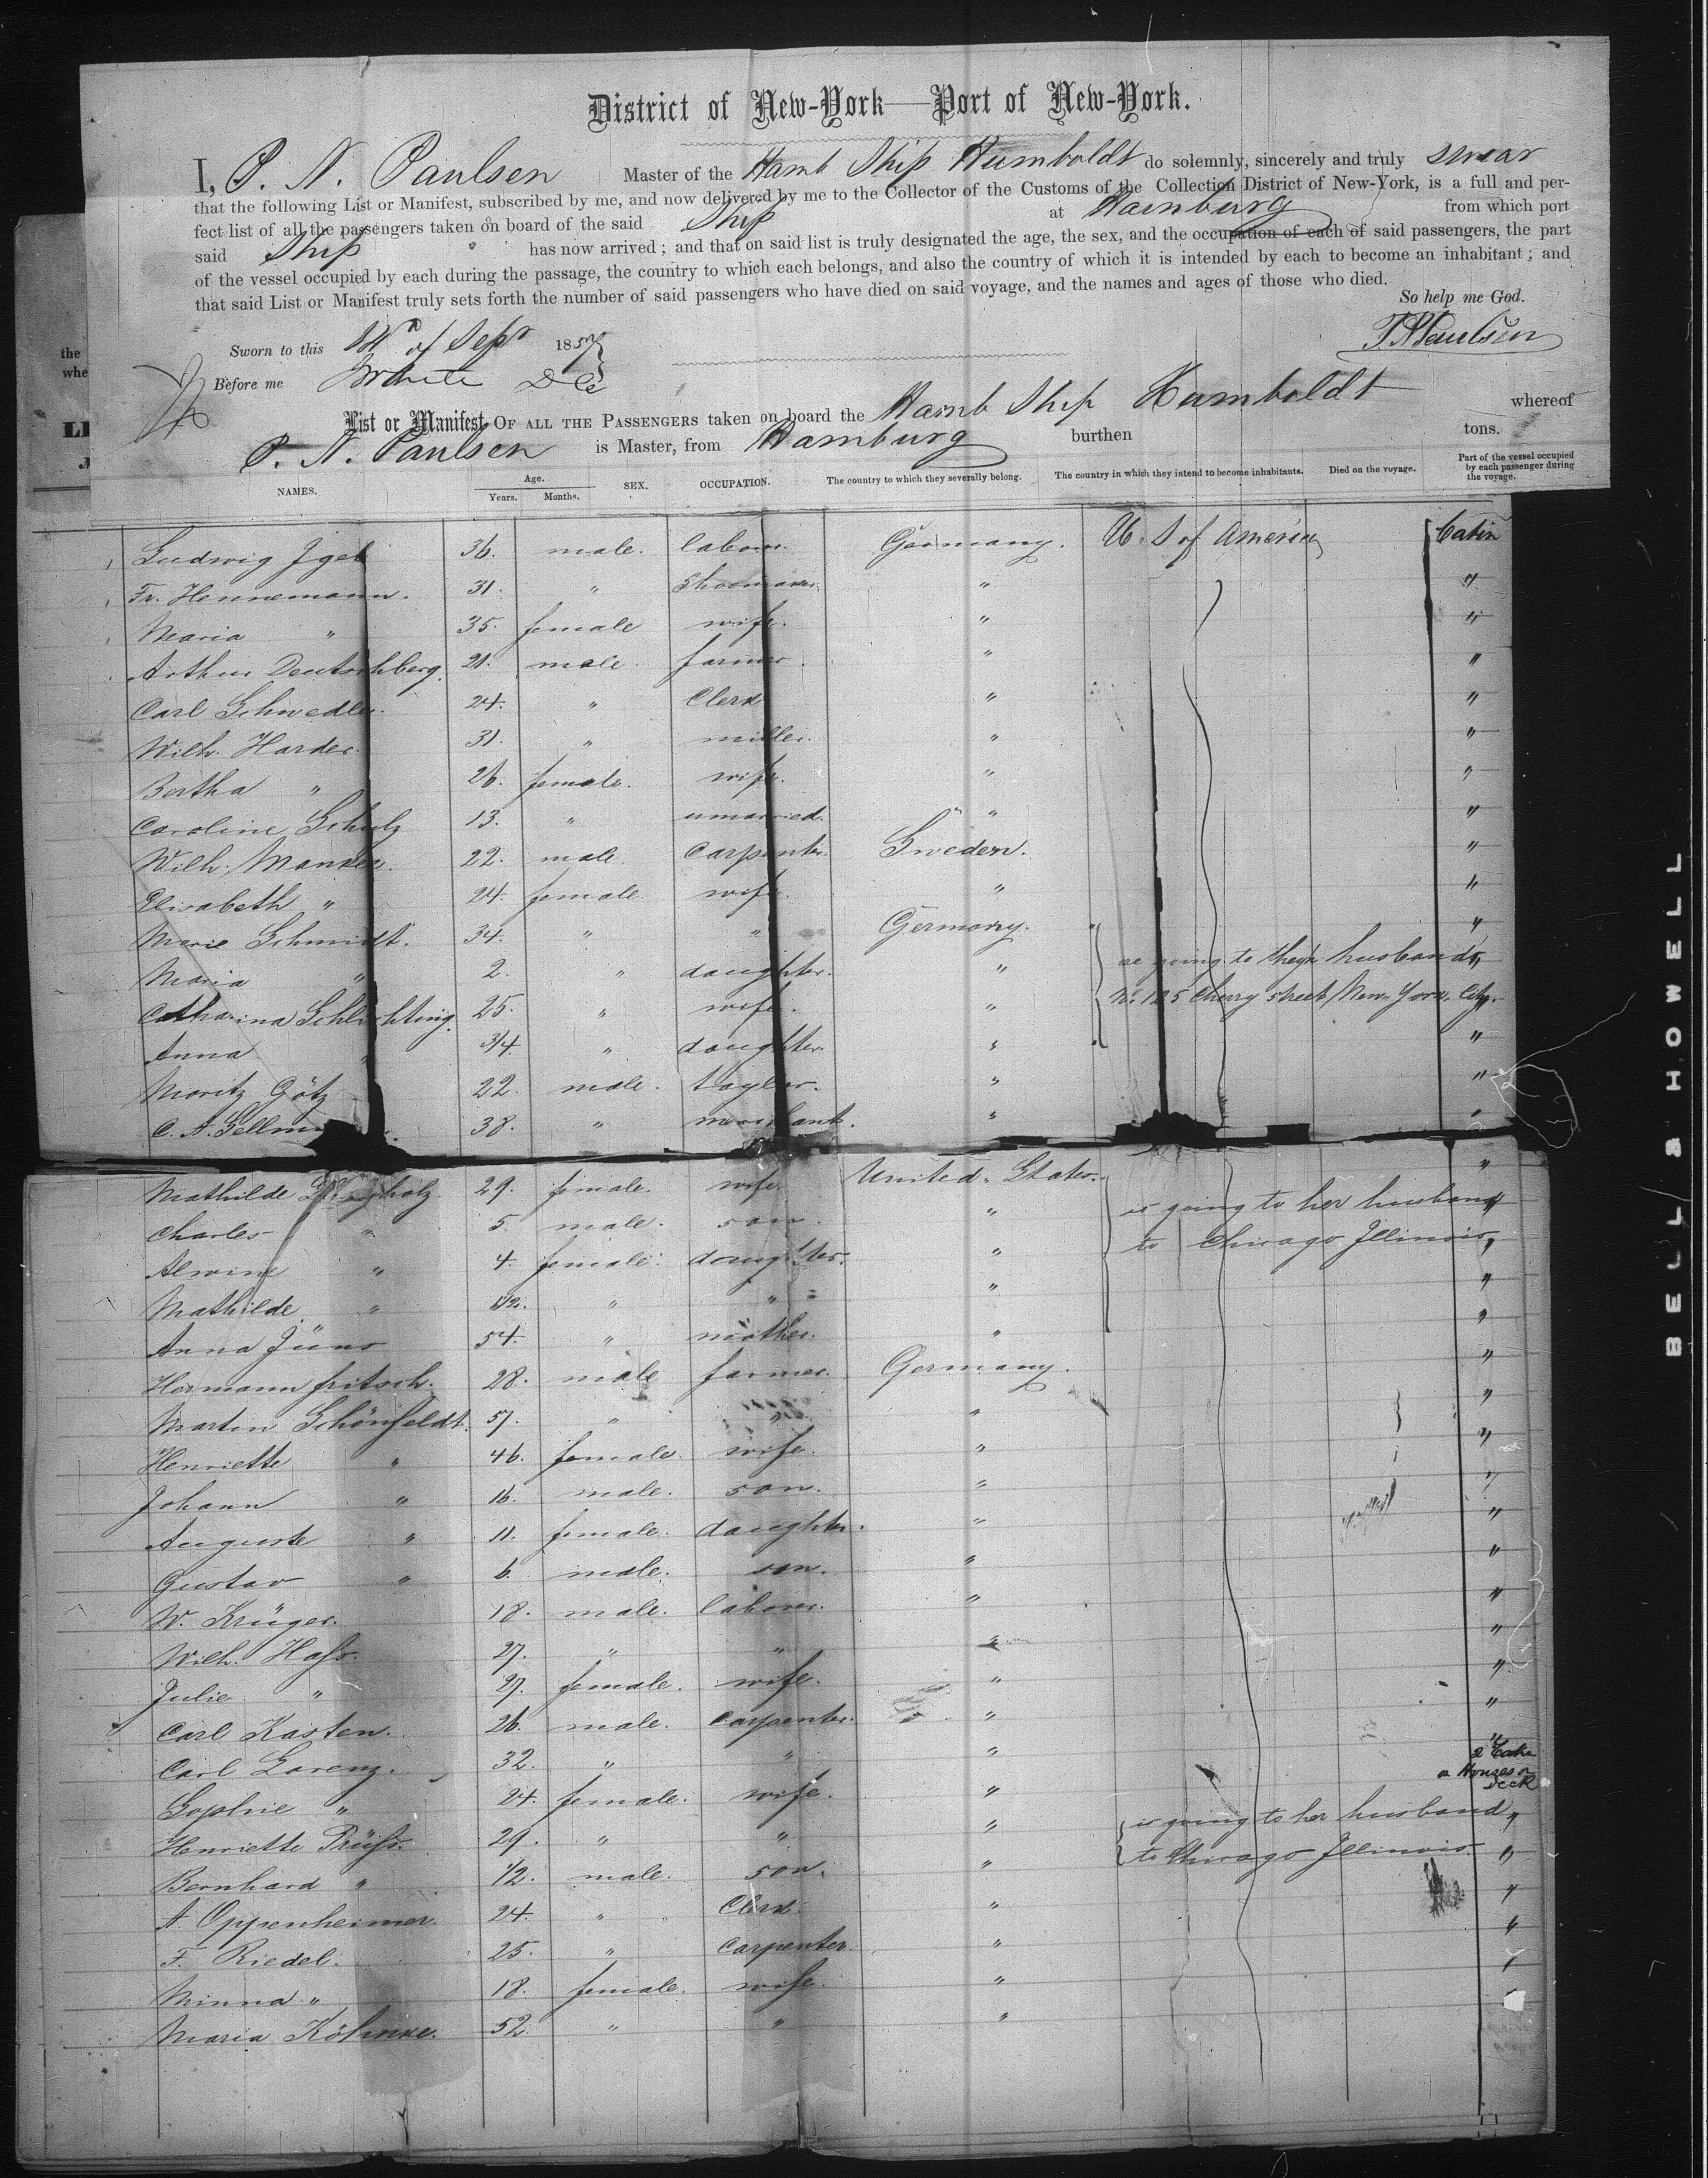 District of New-York—Port of New-York.
I, P. N. Paulsen Master of the Hamb Ship Humboldt do solemnly, sincerely and truly swear
that the following List or Manifest, subscribed by me, and now delivered by me to the Collector of the Customs of the Collection District of New-York, is a full and per-
fect list of all the passengers taken on board of the said Ship at Hamburg from which port
said Ship has now arrived; and that on said list is truly designated the age, the sex, and the occupation of each of said passengers, the part
of the vessel occupied by each during the passage, the country to which each belongs, and also the country of which it is intended by each to become an inhabitant; and
that said List or Manifest truly sets forth the number of said passengers who have died on said voyage, and the names and ages of those who died.
So help me God.
Sworn to this of Sept 185 P. N. Paulsen
Before me White
List or Manifest OF ALL THE PASSENGERS taken on board the Hamb Ship Humboldt whereof
P. N. Paulsen is Master, from Hamburg burthen tons.
NAMES. Age. Years. Months. SEX. OCCUPATION. The country to which they severally belong. The country in which they intend to become inhabitants. Died on the voyage. Part of the vessel occupied by each passenger during the voyage.
Ludwig Igel 36. male. labour. Germany. U. S of America Cabin
Fr. Hennemann. 31. " Shoemaker. " "
Maria " 35. female wife. " "
Arthur Deutschberg. 21. male. farmer. " "
Carl Schwedler. 24. " Clerk " "
Wilh. Harder. 31. " miller. " "
Bertha " 26. female. wife. " "
Caroline Schulz 13. " unmarried. " "
Wilh. 22. male carpenter. Sweden. "
Elisabeth " 24. female wife. " "
Marie Schmidt. 34. " " Germany. "
Maria " 2. " daughter. " are going to they's husbands "
Catharina Schlichting. 25. " wife. " No. 125 Cherry street, New York City. "
Anna " 3/4. " daughter. " "
Moritz Götz 22. male. taylor. " "
C. A. 38. " merchant. " "
Mathilde 29. female. wife. United States. "
Charles " 5. male. son. " is going to her husband "
Alwine " 4. female. daughter. " to Chicago Illinois "
Mathilde " 1/2. " " " "
Anna Jüns 54. " mother. " "
Hermann fritsch. 28. male farmer. Germany. "
Martin Schönfeldt. 57. " " " "
Henriette " 46. female. wife. " "
Johann " 16. male. son. " "
Auguste " 11. female. daughter. " "
Gustav " 6. male. son. " "
W. Krüger. 18. male. laborer. " "
Wilh. Hass. 27. " " " "
Julie " 27. female. wife. " "
Carl Kasten. 26. male. carpenter. " "
Carl Lorenz. 32. " " " " Houses on Deck
Sophie " 24. female. wife. "
Henriette Prüss. 29. " " " is going to her husband "
Bernhard " 1/2. male. son. " to Chicago Illinois. "
A. Oppenheimer. 24. " Clerk. " "
F. Riedel. 25. " carpenter. " "
Minna " 18. female. wife. " "
Maria Köhnke. 52. " " "
BELL & HOWELL